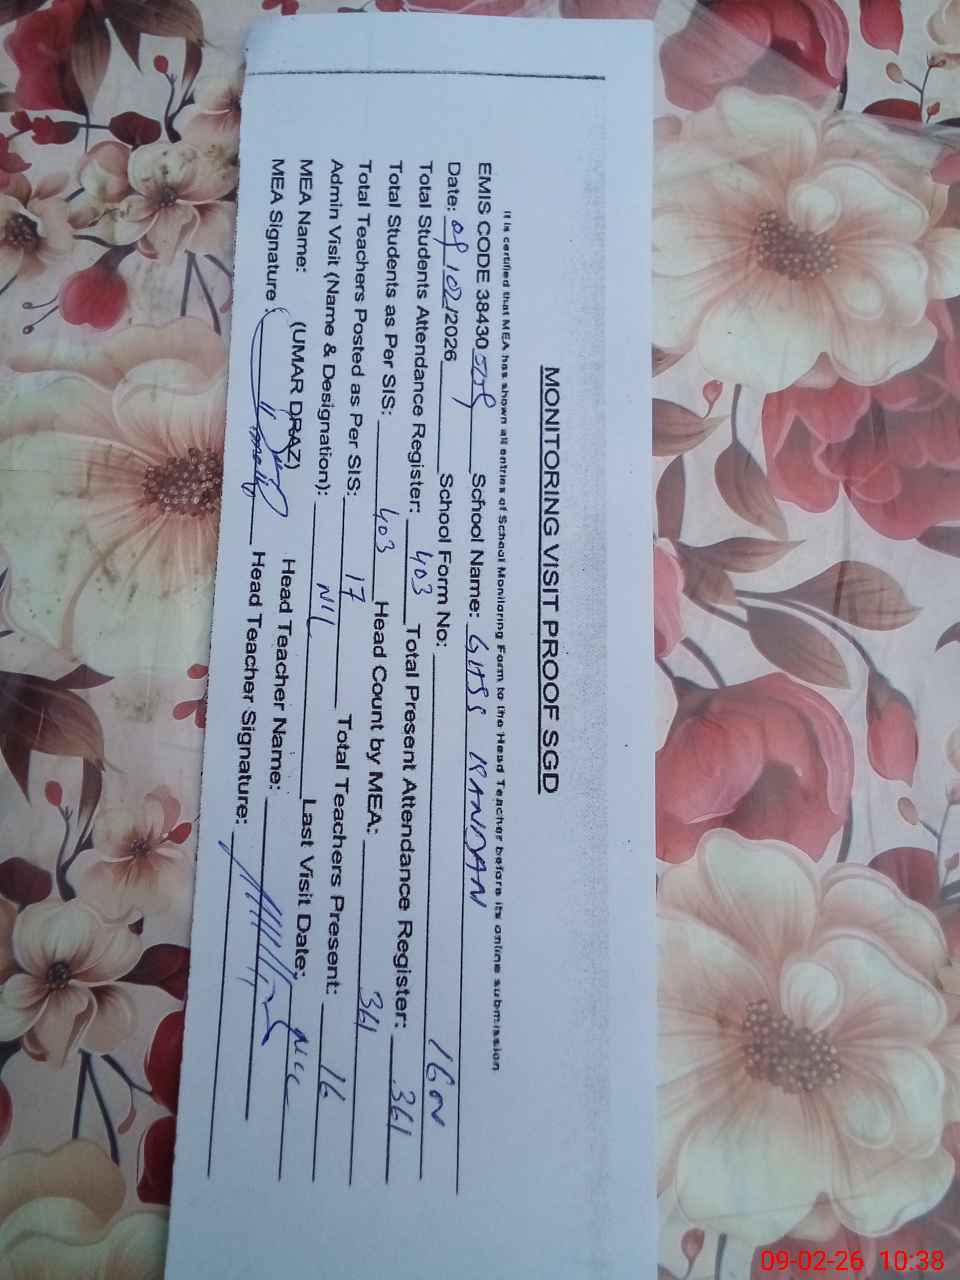 MONITORING VISIT PROOF SGD
It is certified that MEA has shown all entries of School Monitoring Form to the Head Teacher before its online submission
EMIS CODE 38430 School Name: GHSS RANDAN
Date: 09/02/2026 School Form No:
Total Students Attendance Register: 403 Total Present Attendance Register: 361
Total Students as Per SIS: 403 Head Count by MEA: 361
Total Teachers Posted as Per SIS: 17 Total Teachers Present: 16
Admin Visit (Name & Designation): NIL Last Visit Date:
MEA Name: (UMAR DRAZ) Head Teacher Name:
MEA Signature: Head Teacher Signature:
09-02-26 10:38